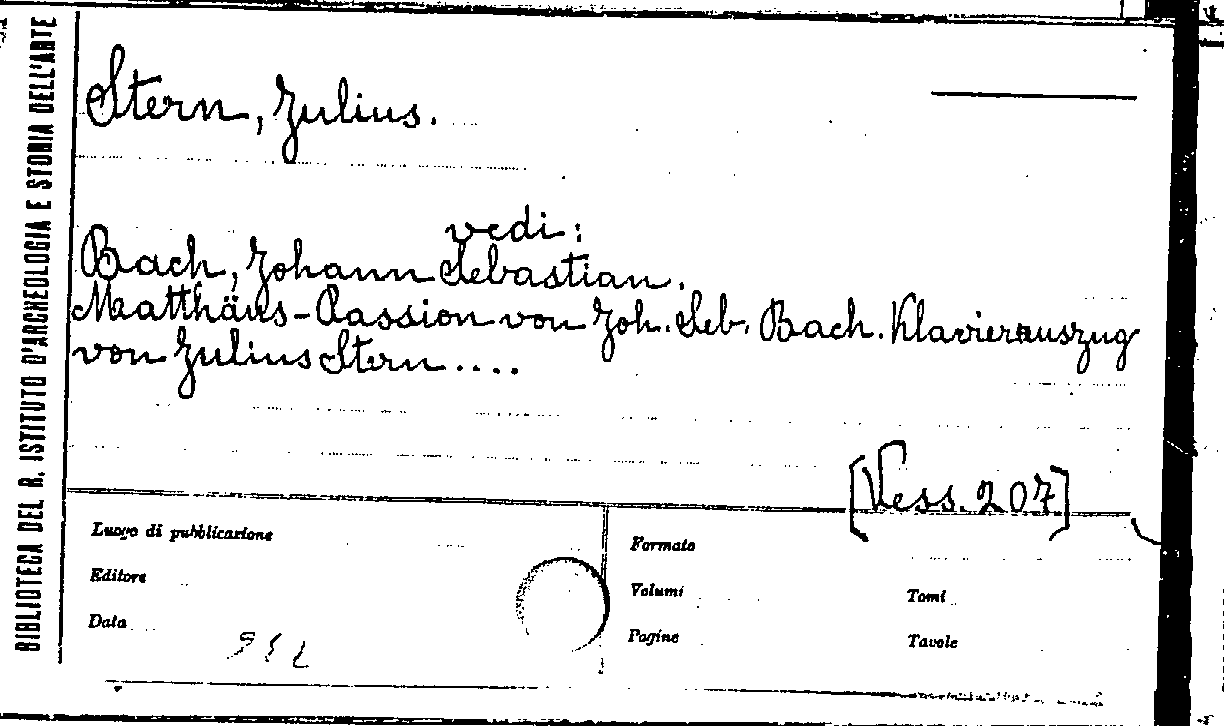 BIBLIOTECA DEL R. ISTITUTO D'ARCHEOLOGIA E STORIA DELL'ARTE
Stern, Julius.
vedi:
Bach, Johann Sebastian.
Matthäus-Passion von Joh. Seb. Bach. Klavierauszug
von Julius Stern....
[Vess. 207]
Luogo di pubblicazione
Editore
Data
Formato
Volumi
Tomi
Pagine
Tavole